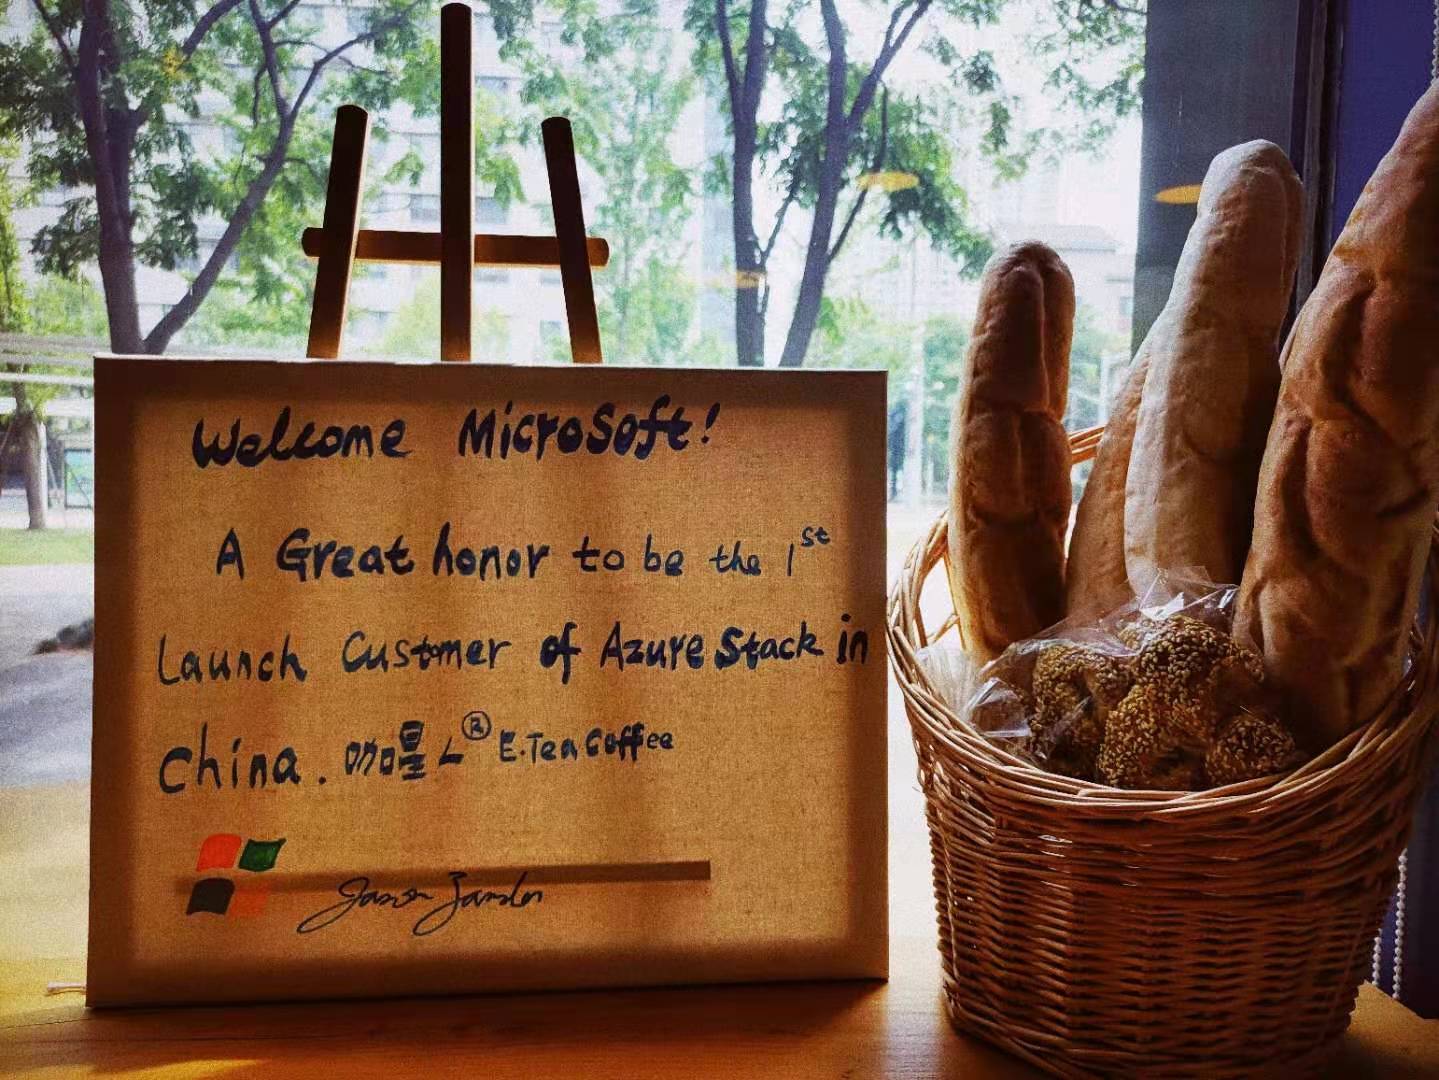 Welcome MicroSoft!
A Great honor to be the 1st
Launch Customer of Azure Stack in
China. 咖啡厶® E.Tea Coffee
Jason Zander